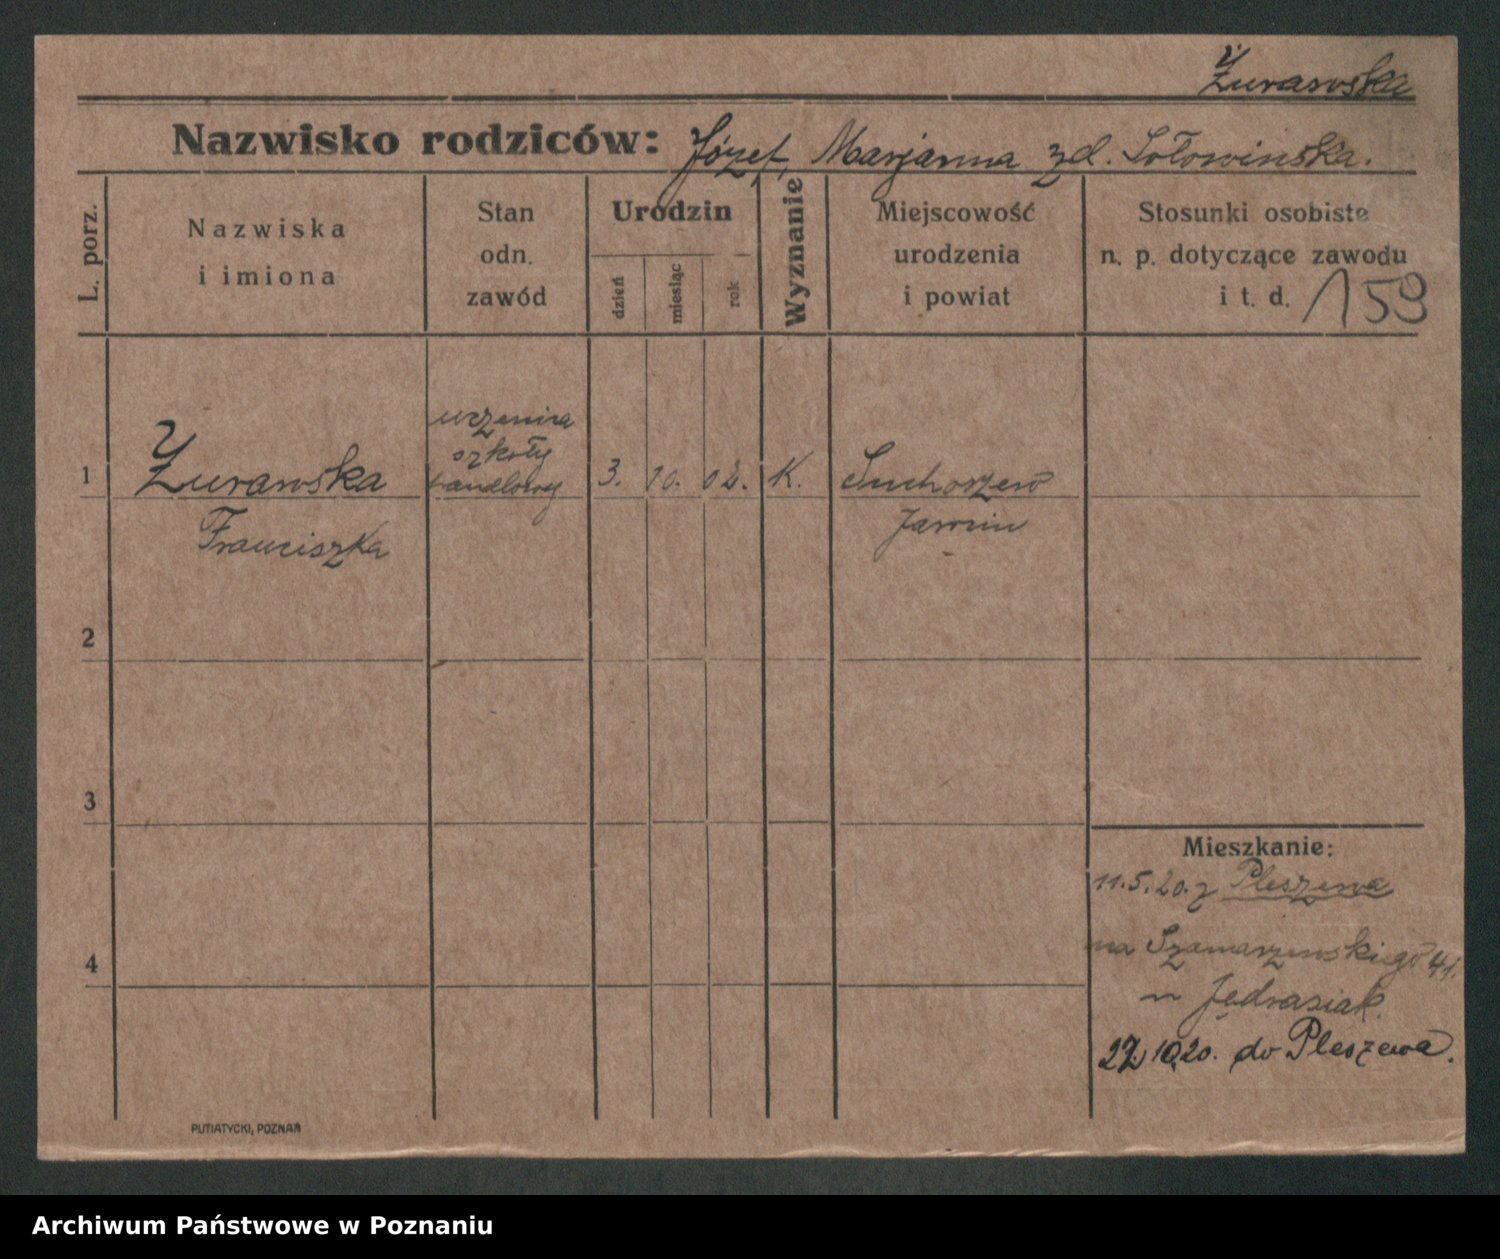 Żurawska
Nazwisko rodziców: Józef, Marjanna zd. Sołowinska.
L. porz.
Nazwiska
i imiona
Stan
odn.
zawód
Urodzin
dzień
miesiąc
rok
Wyznanie
Miejscowość
urodzenia
i powiat
Stosunki osobiste
n. p. dotyczące zawodu
i t. d. 159
1
Żurawska
Franciszka
uczenica
szkoły
handlowej
3. 10. 02. K.
Suchorzew
Jarocin
2
3
4
Mieszkanie:
11.5.20. z Pleszewa
na Szamarzewskiego 41.
Jędrasiak.
27.10.20. do Pleszewa.
PUTIATYCKI, POZNAŃ
Archiwum Państwowe w Poznaniu